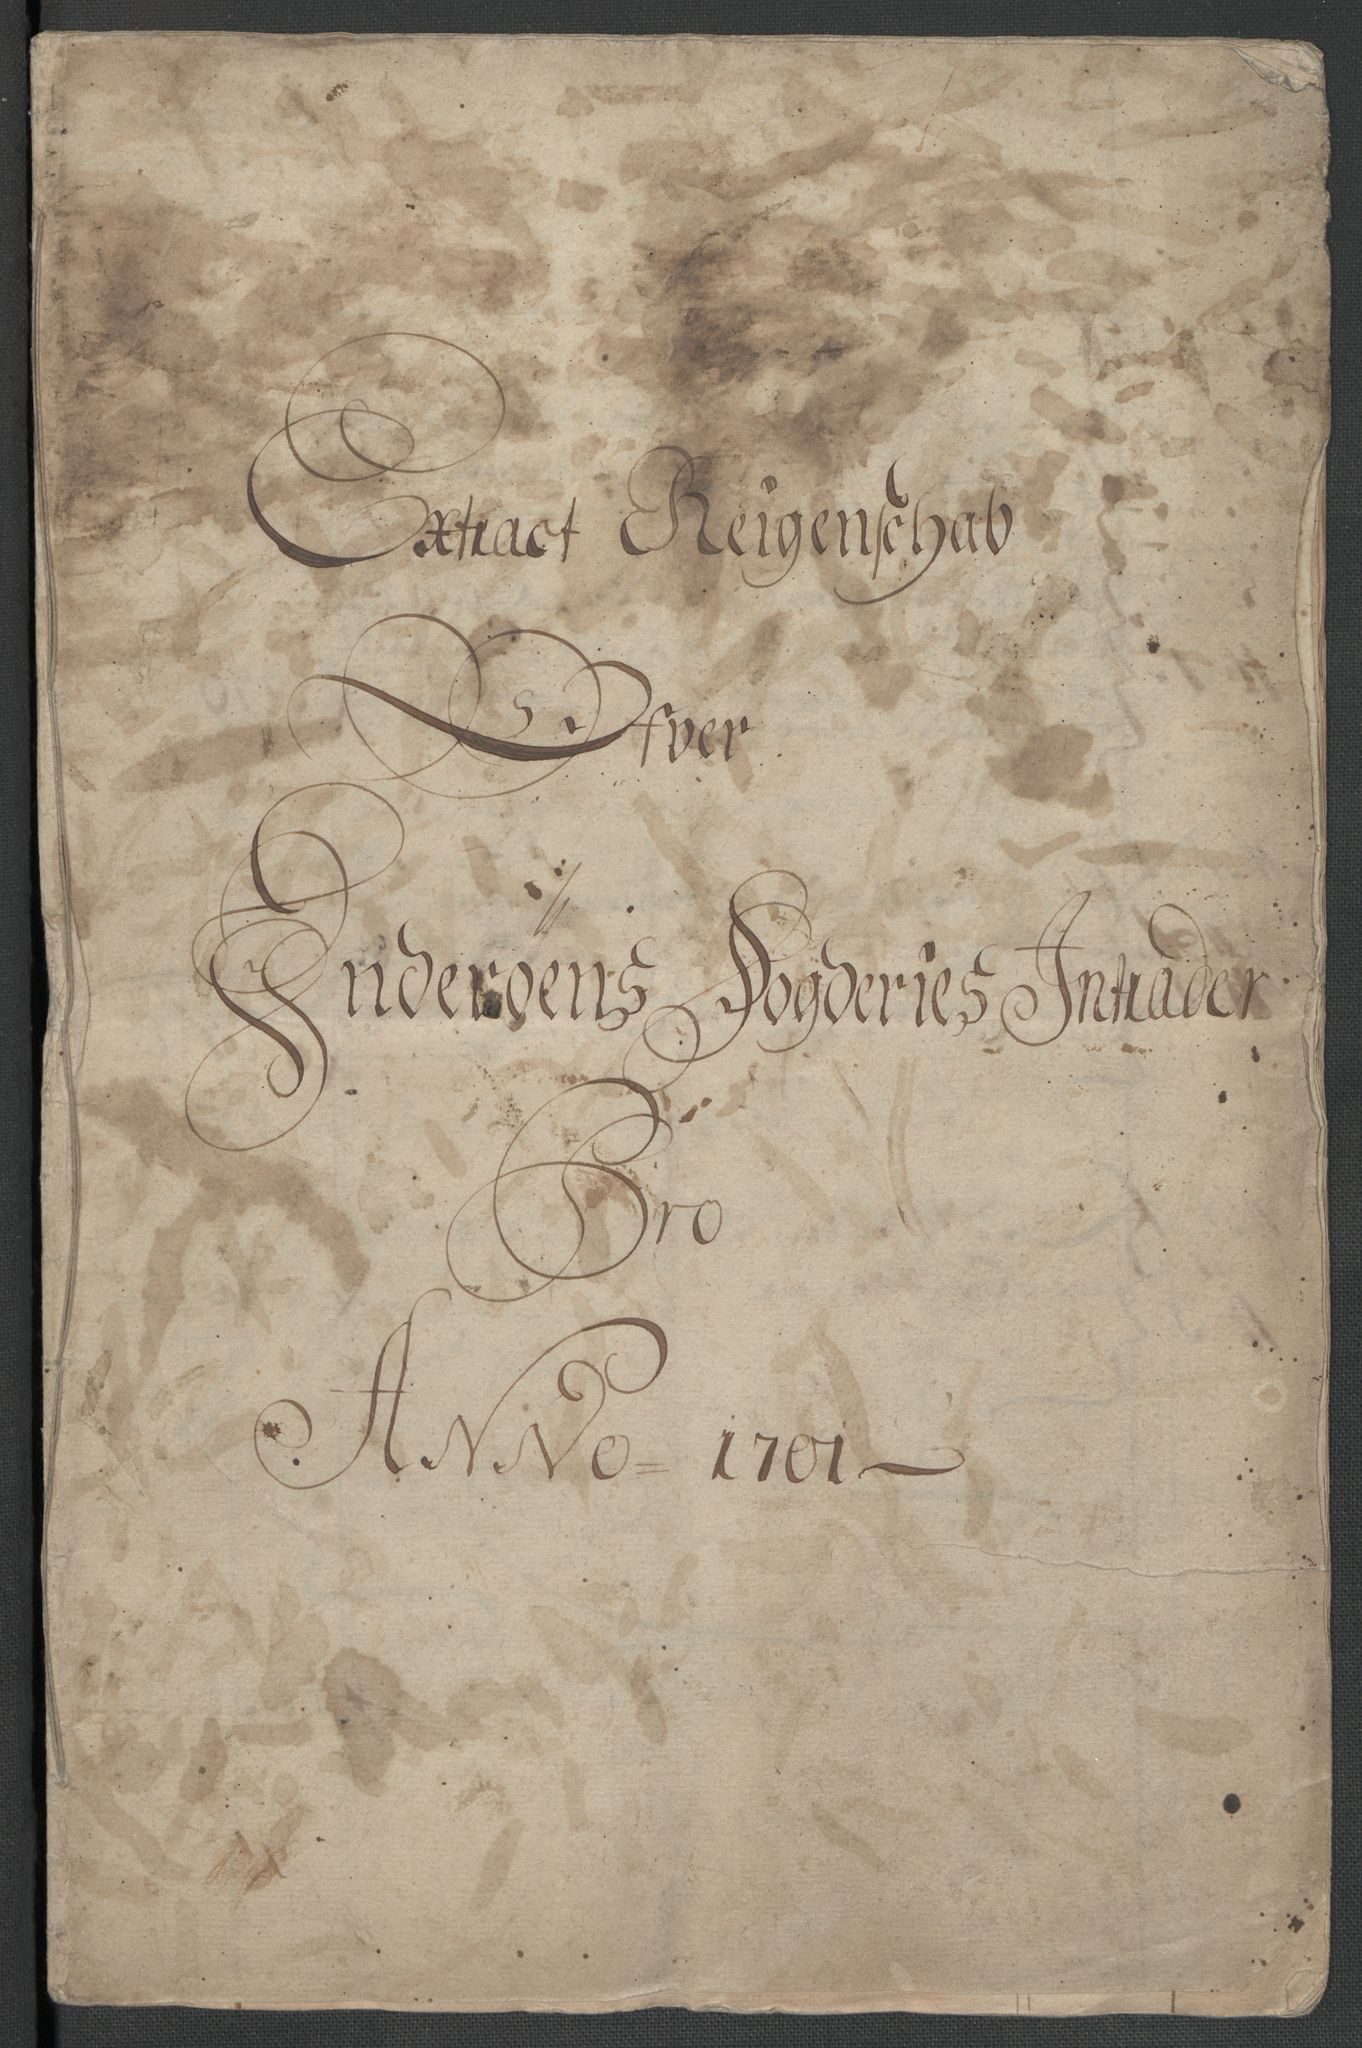 Extract Reigenschab
Ofver
Inderøens Fogderies Intrader
Pro
ANNO = 1701